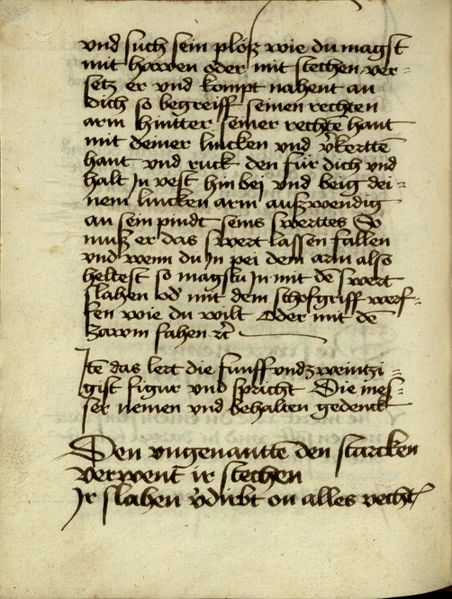 vnd such sein plösz wie du magst
mit hawen oder mit stechen ver=
setz er vnd kompt nahent an
dich so begreiff seinen rechten
arm hintter seiner rechtē hant
mit deiner lincken vnd v̓kerttē
hant vnd ruck den für dich vnd
halt In vest hin bei vnd beig dei=
nem lincken arm ausz wendig
an sein pindt seins swerttes So
musz er das swert lassen fallen
vnd wenn du In pei dem arm also
heltest so magstu In mit dē swert
slahen od̓ mit dem schofgriff werf=
fen wie du wilt Oder mit dē
zawm fahen ꝛc̄
Itē das lert die funff ondzweintzi=
gist figur vnd spricht Die mes=
ser nemen vnd behalten gedenck
Den vngenanttē den starcken
verwent ir stechen
Ir slahen v̓dirbt on alles vecht̄